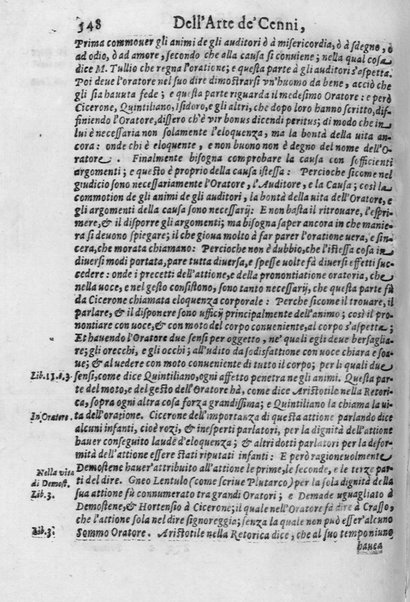 348 Dell'Arte de' Cenni,
Prima commouer gli animi de gli auditori ò à misericordia, ò à sdegno, ò
ad odio, ò ad amore, secondo che alla causa si conuiene; nella qual cosa
dice M. Tullio che regna l'oratione; e questa parte à gli auditori s'aspetta.
Poi deue l'oratore nel suo dire dimostrarsi vn'huomo da bene, acciò che
gli sia hauuta fede; e questa parte riguarda il medesimo Oratore: e però
Cicerone, Quintiliano, Isidoro, e gli altri, chè dopo loro hanno scritto, dif-
finiendo l'Oratore, dissero ch'è vir bonus dicendi peritus; di modo che in
lui è necessaria non solamente l'eloquenza, ma la bontà della vita an-
cora: onde chi è eloquente, e non buono non è degno del nome dell'O-
ratore. Finalmente bisogna comprobare la causa con sofficienti
argomenti; e questo è proprio della causa istessa: Percioche sicome nel
giudicio sono necessariamente l'Orator, l'Auditore, e la Causa; così la
commotion de gli animi de gli auditori, la bontà della vita dell'Oratore, e
gli argomenti della causa sono necessarij: E non basta il ritrouare, l'espri-
mere, & il disporre gli argomenti; ma bisogna saper ancora in che manie-
ra si deuono spiegare; il che gioua molto à far parer l'oratione vera, e sin-
cera, che morata chiamano: Percioche non è dubbio, che l'istessa cosa in
diuersi modi portata, pare tutta diuersa, e spesse uolte fà diuersi effetti suc-
cedere: onde i precetti dell'attione, e della pronontiation oratoria, che
nella uoce, e nel gesto consistono, sono tanto necessarij, che questa parte fù
da Cicerone chiamata eloquenza corporale: Perche sicome il trouare, il
parlare, & il disponere sono ufficij principalmente dell'animo; così il pro-
nontiare con uoce, & con moto del corpo conueniente, al corpo s'aspetta;
Et hauendo l'Oratore due sensi per oggetto, ne' quali egli deue bersaglia-
re; gli orecchi, e gli occhi; all'udito da sodisfattione con uoce chiara e soa-
ue; & al uedere con moto conueniente di tutto il corpo; per li quali due
Lib. 11. c. 3. sensi, come dice Quintiliano, ogni affetto penetra ne gli animi. Questa par-
te del moto, e del gesto dell'Oratore hà, come dice Aristotile nella Retori-
ca, sopra ogni altra cosa forza grandissima; e Quintiliano la chiama la ui-
In Oratore. ta dell'oratione. Cicerone dell'importanza di questa attione parlando dice
alcuni infanti, cioè rozi, & inesperti parlatori, per la dignità dell'attione
hauer conseguito laude d'eloquenza; & altri dotti parlatori per la defor-
mità dell'attione essere stati riputati infanti: E però ragioneuolmente
Nella vita Demostene hauer'attribuito all'attione le prime, le seconde, e le terze par-
di Demost. ti del dire. Gneo Lentulo (come scriue Plutarco) per la sola dignità della
Lib. 3. sua attione fù connumerato tra grandi Oratori; e Demade uguagliato à
Demostene, & Hortensio à Cicerone; il quale nell'Oratore fà dire à Crasso,
che l'attione sola nel dire signoreggia; senza la quale non può esser'alcuno
Lib. 3. Sommo Oratore. Aristotile nella Retorica dice, che al suo tempo niuno
hauea